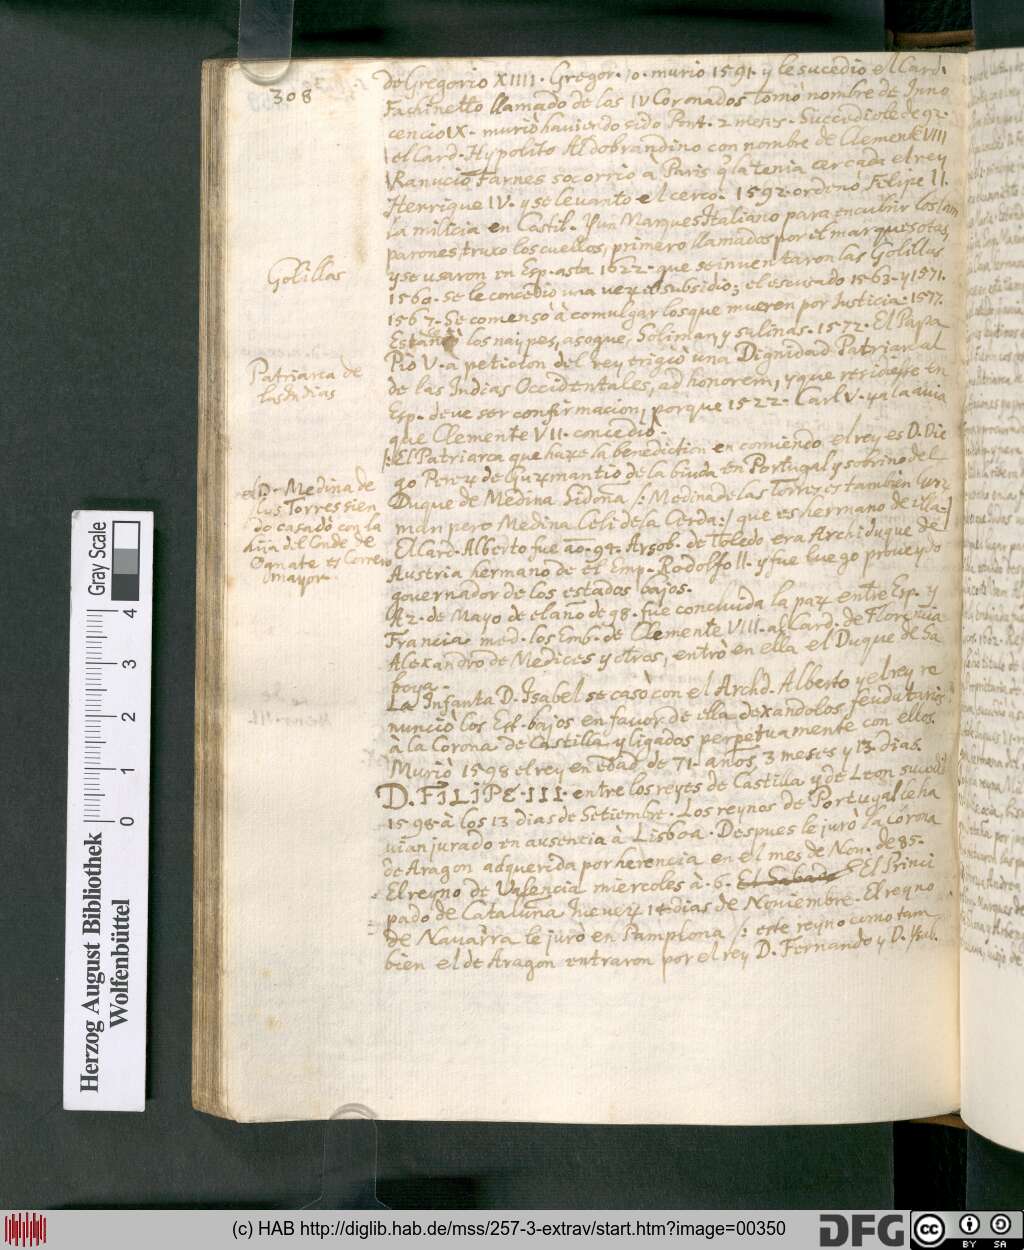 308
de Gregorio XIIII. Gregor. io. murio 1591. y le sucedio el Card.
Fachinetto llamado de las IV Coronados tomó nombre de Inno
cencio IX. murio haviendo sido Pont. 2 meses. Succediole de 92.
el Card. Hypolito Aldobrandino con nombre de Clemente VIII
Ranucio Farnes socorrio à Paris q la tenia cercada el rey
Henrique IV. y se levanto el cerco. 1592. ordenó Filipe II.
la milicia en Castil. Y un Marques Italiano para encubrir los lam
parones, truxo los cuellos, primero llamados por el marquesotas,
y se usaron en Esp. asta 1622. que se inventaron las Golillas
1560. se le concedio una vez el subsidio; el escusado 1563. y 1571.
1567. Se comensò à comulgar los que mueren por Justicia. 1577.
los naipes, asogue, Soliman y salinas. 1572. El Papa
Pio V. a peticion del rey erigio una Dignidad Patriarcal
de las Indias Occidentales, ad honorem, y que residiesse en
Esp. deve ser confirmacion, porque 1522. Carl V. ya la avia
que Clemente VII. concedio.
/: El Patriarca que haze la benediction en comiendo el rey es D. Die
go Perez de Guzman tio de la biuda en Portugal y sobrino del
Duque de Medina Sidoña /: Medina de las Torrez es tambien Guz
man pero Medina Celi de la Cerda :/ que es hermano de
El Card. Alberto fue año. 94. Arsob. de Toledo era Archiduque de
Austria hermano de el Emp. Rodolfo II. y fue luego proueydo
governador de los estados bajos.
A 2. de Mayo de el año de 98. fue concluida la paz entre Esp. y
Francia. med. los Emb. de Clemente VIII. al Card. de Florencia
Alexandro de Medices y otros, entrò en ella el Duque de Sa
boya.
La Infanta D. Isabel se casò con el Archd. Alberto y el rey re
nunciò los Est. bajos en favor de ella dexandolos feudutarios
à la Corona de Castilla y ligados perpetuamente con ellos.
Muriò 1598 el rey en edad de 71. años 3 meses y 13. dias.
D. FILIPE. III. entre los reyes de Castilla y de Leon sucedio
1598. à los 13 dias de Setiembre. Los reynos de Portugal le ha
vian jurado en ausencia à Lisboa. Despues le jurò la Corona
de Aragon adquerida por herencia en el mes de Nov. de 85.
El reyno de Valencia miercoles à. 6. El Sabado El Princi
pado de Cataluña Juevez 14. dias de Noviembre. El reyno
de Navarra le juró en Pamplona /: este reyno como tam
bien el de Aragon entraron por el rey D. Fernando y D. Isab.
Golillas
Patriarca de
las Indias
el D. Medina de
las Torres sien
do casado con la
hija del Conde de
Oqnate es Correo
mayor.
Gray Scale
0 1 2 3 4
Herzog August Bibliothek
Wolfenbüttel
(c) HAB http://diglib.hab.de/mss/257-3-extrav/start.htm?image=00350
DFG
cc BY SA